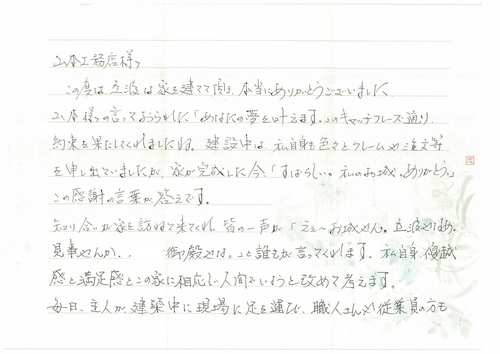 山本工務店様へ
この度は立派な家を建てて頂き、本当にありがとうございました。
山本様の言っておられた「あなたの夢を叶えます。」のキャッチフレーズ通り
約束を果たしてくれましたね。建設中は私自身も色々とクレームや注文等
を申し出ていましたが、家が完成した今「すばらしい。私のお城。ありがとう。」
この感謝の言葉が答えです。
知り合いが家を訪ねて来てくれ、皆の一声が「えぇ〜お城やん。立派やなあ。
見事やんか。 御殿やは。」と誰もが言ってくれます。私自身優越
感と満足感とこの家に相応しい人間でいようと改めて考えます。
毎日、主人が建築中に現場に足を運び、職人さんや従業員の方も